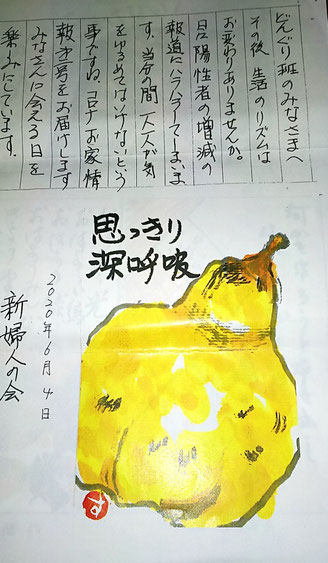 どんぐり班のみなさまへ
その後 生活のリズムは
お変わりありませんか。
日々陽性者の増減の
報道にハラハラしてしまいま
す。当分の間一人一人が気
をゆるめてはいけないという
事ですね。コロナお家情
報第三号をお届けします
みなさんに会える日を
楽しみにしています。
思っきり
深呼吸
2020年6月4日
新婦人の会